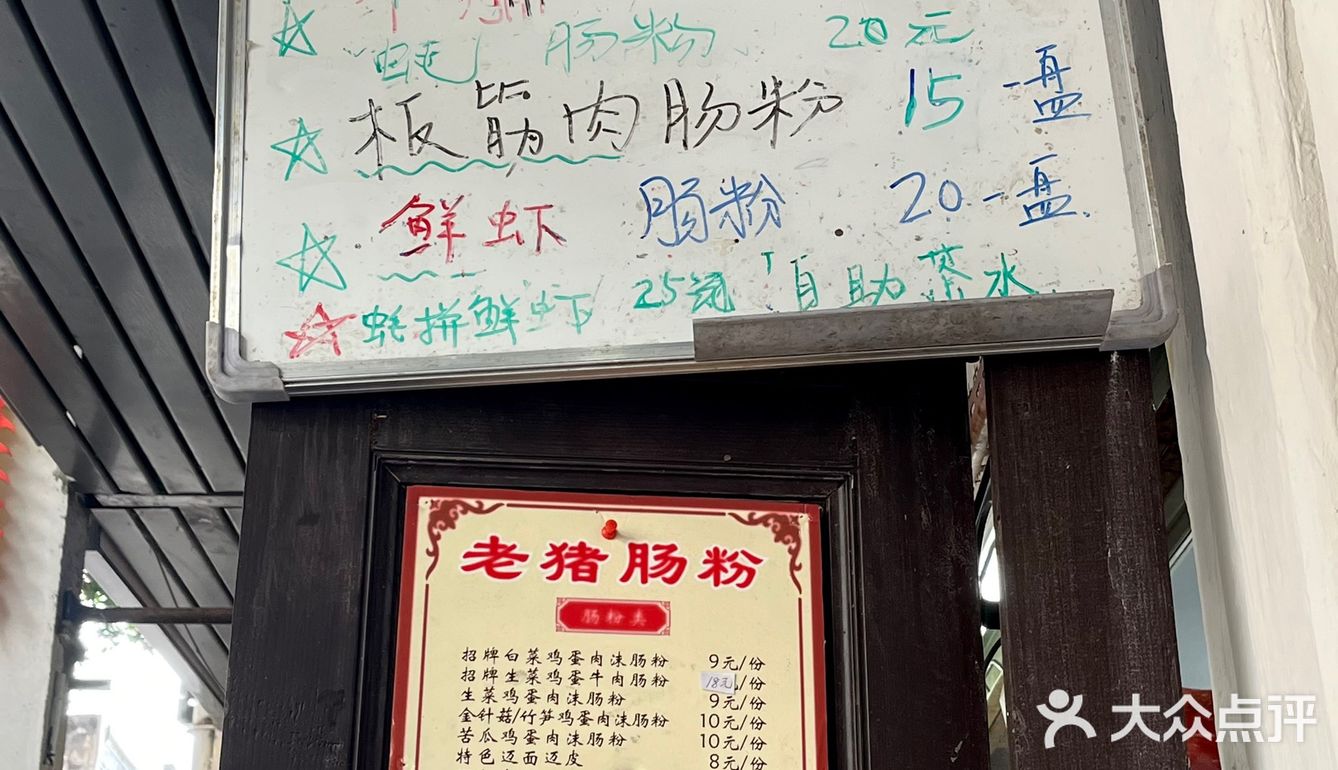 ☆ 蚝 肠粉 20元
☆ 板筋肉肠粉 15 一盘
☆ 鲜虾 肠粉 20 一盘
☆ 蚝拼鲜虾 25元 自助茶水
老猪肠粉
肠粉类
招牌白菜鸡蛋肉沫肠粉 9元/份
招牌生菜鸡蛋牛肉肠粉 18元/份
生菜鸡蛋肉沫肠粉 9元/份
金针菇/竹笋鸡蛋肉沫肠粉 10元/份
苦瓜鸡蛋肉沫肠粉 10元/份
特色迈面迈皮 8元/份
大众点评